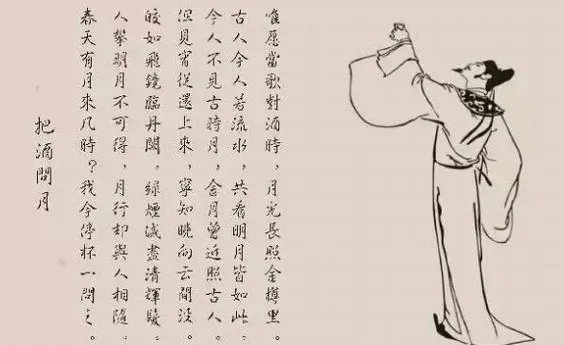 把酒問月
春天有月來几時？我今停杯一問之。
人攀明月不可得，月行却與人相隨。
皎如飛鏡臨丹闕，綠煙滅盡清輝
但見宵從還上來，寧知晚向云間沒。
今人不見古時月，今月曾近照古人。
古人今人若流水，共看明月皆如此。
唯愿當歌對酒時，月光長照金